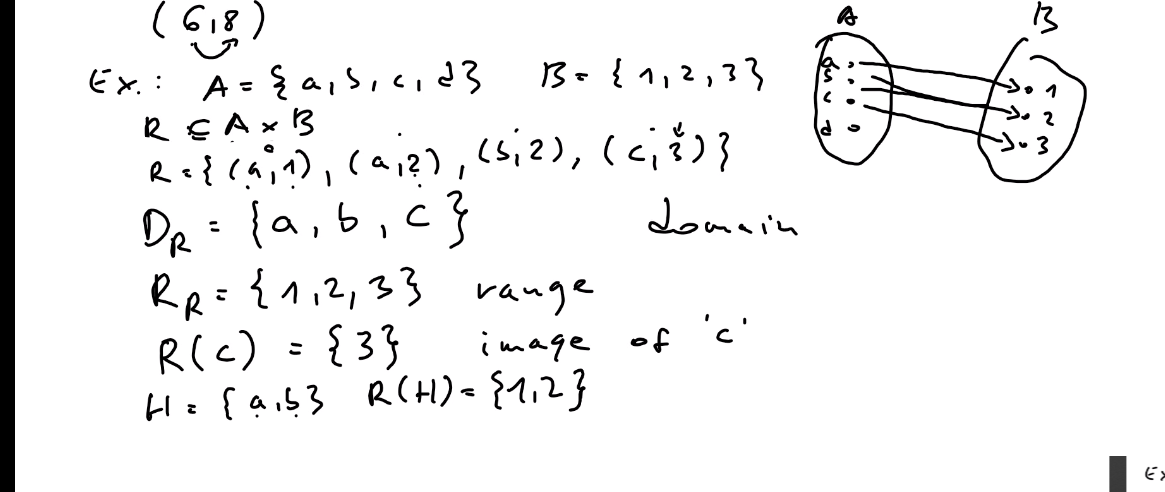 (6,8)
Ex.: A = {a, b, c, d} B = {1, 2, 3}
R ⊆ A × B
R = {(a, 1), (a, 2), (b, 2), (c, 3)}
D_R = {a, b, c} domain
R_R = {1, 2, 3} range
R(c) = {3} image of 'c'
H = {a, b} R(H) = {1, 2}
A B
a 1
b 2
c 3
d
Ex